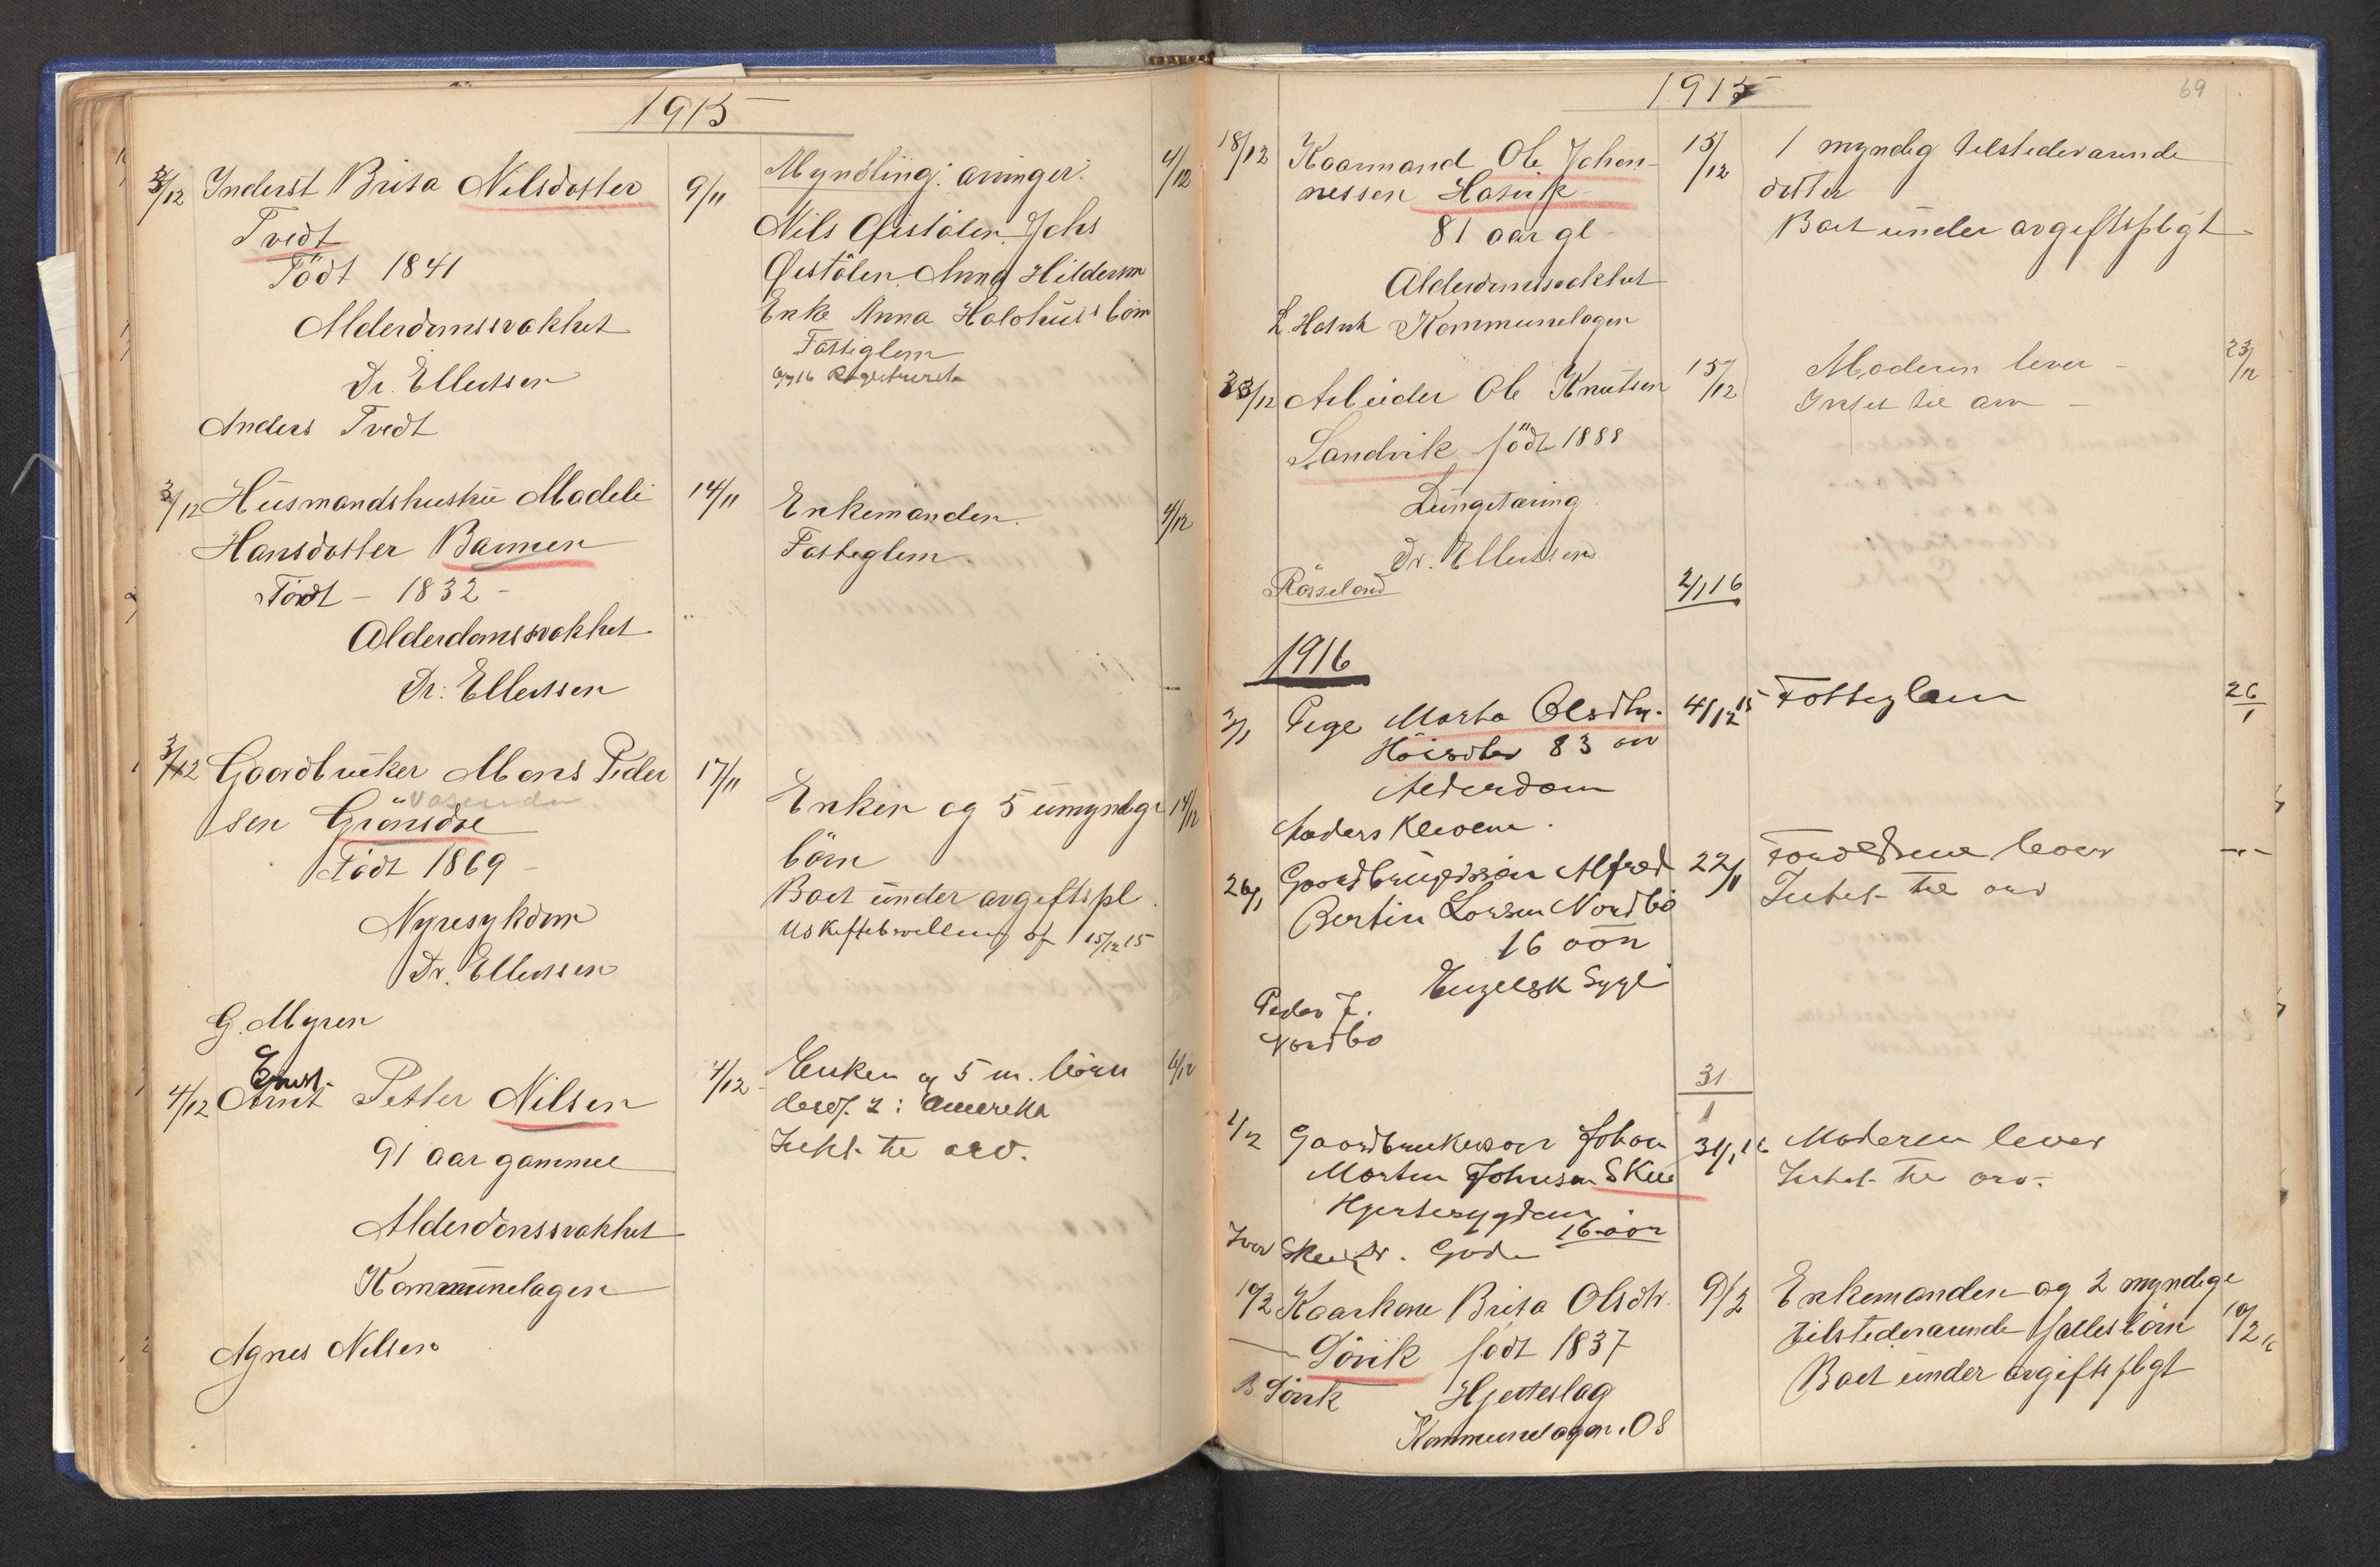 1915
3/12 Inderst Brita Nilsdotter 9/11 Myndling: arvinger: 4/12
Tvedt Nils Øistölen Johs
Födt 1841 Øistölen, Anna
Alderdomssvakhet Enke Anna börn
Dr. Ellertsen Fattiglem
Anders Tvedt
3/12 Husmandshustru Madeli 14/11 Enkemanden. 4/12
Hansdotter Bammen Fattiglem.
Födt - 1832 -
Alderdomssvakhet
Dr. Ellertsen
3/12 Gaardbruker Mons Peder 17/11 Enken og 5 umyndige 14/12
sen Grönsdal börn
Födt 1869 - Boet under avgiftspl.
Nyresykdom 15/12 15
Dr. Ellertsen
G. Myren
Ernst
4/12 Arnt Petter Nilsen 4/12 Enken og 5 m. börn 6/12
91 aar gammel deraf 2 i Amerika
Alderdomssvakhet Intet til arv.
Kommunelægen
Agnes Nilsen
1915
69
18/12 Kaarmand Ole Johan- 15/12 1 myndig tilstedeværende
nessen Hatvik datter
81 aar gl - Boet under avgiftspligt -
Alderdomssvakhet
L. Hatvik Kommunelægen
23/12 Arbeider Ole Knutsen 15/12 Moderen lever - 23/12
Sandvik födt 1888 Intet til arv -
Lungetæring
Dr. Ellertsen
Rösseland 2/1 16
1916
3/1 Pige Marta Olsdtr. 4/12 15 Fattiglem 26/1
83 aar
Alderdom
Anders
26/1 Gaardbrukersön Alfred 22/1 Forældrene lever -"-
Bertin Larsen Nordbö Intet til arv
16 aar
Engelsk Syge
Peder J.
Nordbö
31/1
2/2 Gaardbrukersön Johan 31/1 16 Moderen lever
Martin Johnsen Skeie Intet til arv.
Hjertesygdom
16 aar
Ivar Skeie Dr. Gade
10/2 Kaarkone Brita Olsdtr. 9/2 Enkemanden og 2 myndige
Sövik födt 1837 tilstedeværende fællesbörn 10/2 16
B. Sövik Hjerteslag Boet under avgiftspligt
Kommunelægen i Os